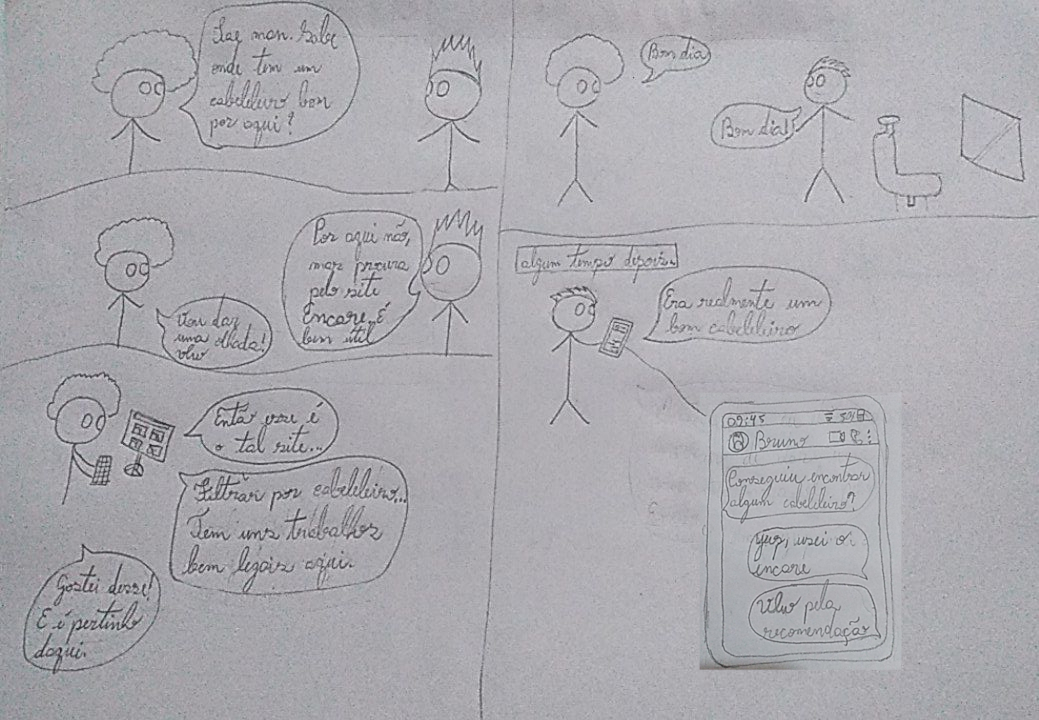 Iae man. Sabe
onde tem um
cabeleleiro bom
por aqui?
Por aqui não,
mas procura
pelo site
Encare. É
bem útil
Vou dar
uma olhada!
vlw
Então esse é
o tal site...
Filtrar por cabeleleiro...
Tem uns trabalhos
bem legais aqui.
Gostei desse!
E é pertinho
daqui.
Bom dia
Bom dia!
algum tempo depois...
Era realmente um
bom cabeleleiro
09:45
Bruno
Conseguiu encontrar
algum cabeleleiro?
Yep, usei o
encare
Vlw pela
recomendação